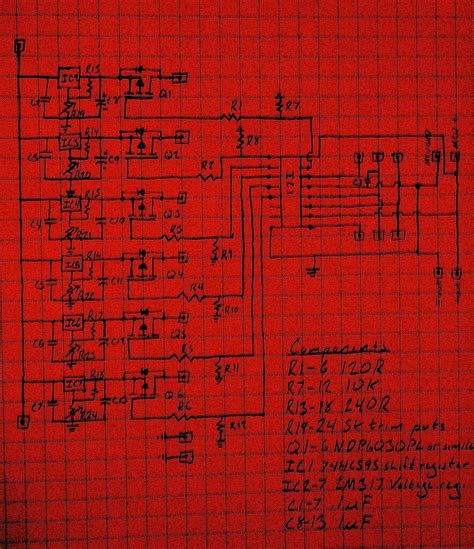 IC2
R13
C8
R19
Q1
R1
R7
IC3
R14
C3
C9
R20
Q2
R2
R8
IC4
R15
C4
C10
R21
Q3
R3
R9
C5
C11
R22
Q4
R4
R10
IC6
C6
R23
Q5
R5
R11
IC7
R18
C7
R24
Q6
R6
R12
IC1
Components
R1-6 120R
R7-12 10K
R13-18 240R
R19-24 5k trim pots
Q1-6 NDP6030PL or similar
IC1 74HC595 shift register
IC2-7 LM317 Voltage reg.
C1-7 .1uF
C8-13 1uF